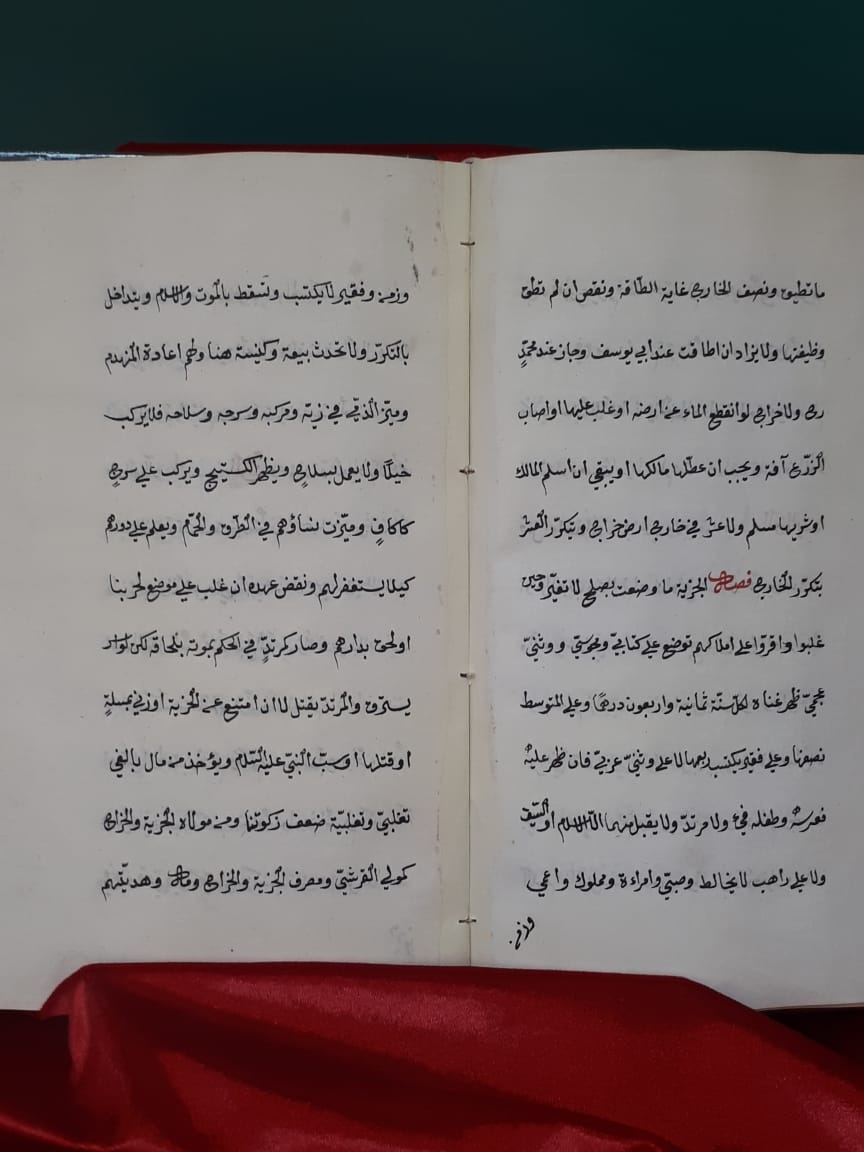 ما تطيق ونصف الخارج غاية الطّاقة ونقص ان لم تطق
وظيفتها ولا يزاد ان اطاقت عند ابي يوسف وجاز عند محمّدٍ
رح ولا خراج لو انقطع الماء عن ارضه او غلب عليها او اصاب
الزّرع آفة ويجب ان عطّلها مالكها او يبقي ان اسلم المالك
او شريها مسلم ولا عشر في خارج ارض خراج ويتكرّر العشر
بتكرّر الخارج فصل الجزية ما وضعت بصلح لا تغيّر وحين
غلبوا واقروا على املاكهم توضع على كتابيّ ومجوسيّ ووثنيّ
عجميّ ظهر غناه لكلّ سنّة ثمانية واربعون درهمًا وعلى المتوسط
نصفها وعلى فقير يكتسب ربعها لا على وثنيّ عربيّ فان ظهر عليه
فعرسه وطفله فيء ولا مرتدّ ولا يقبل منهما الّا الاسلام او السّيف
ولا على راهب لا يخالط وصبيّ وامراءة ومملوك واعمي
وزمن
وزمن وفقير لا يكتسب وتسقط بالموت والاسلام ويتداخل
بالتكرّر ولا تحدث بيعة وكنيسة هنا ولهم اعادة المنهدم
وميّز الذّمّي في زيّه ومركبه وسرجه وسلاحه فلا يركب
خيلًا ولا يعمل بسلاح ويظهر الكستيج ويركب علي سرجٍ
كاكافٍ وميّزت نساؤهم في الطّرق والحمّام ويعلم علي دورهم
كيلا يستغفر لهم ونقض عهده ان غلب علي موضع لحربنا
او لحق بدارهم وصار كمرتدٍّ في الحكم بموته بلحاقه لكن لو اسر
يسترق والمرتدّ يقتل لا ان امتنع عن الجزية او زني بمسلمةٍ
او قتلها او سبّ النّبيّ عليه السّلام ويؤخذ من مال بالغي
تغلبيّ وتغلبيّة ضعف زكوتنا ومن مولاه الجزية والخراج
كمولي القرشيّ ومصرف الجزية والخراج وما وهديّتهم